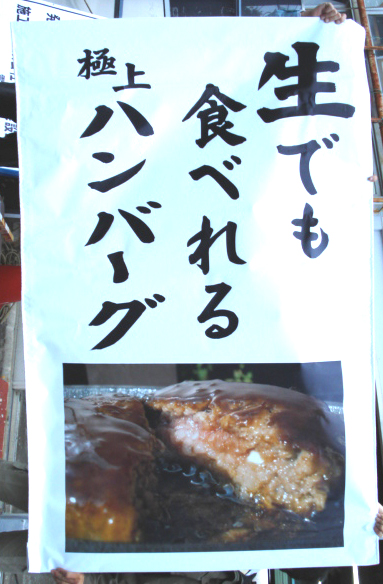 生でも
食べれる
極上
ハンバーグ